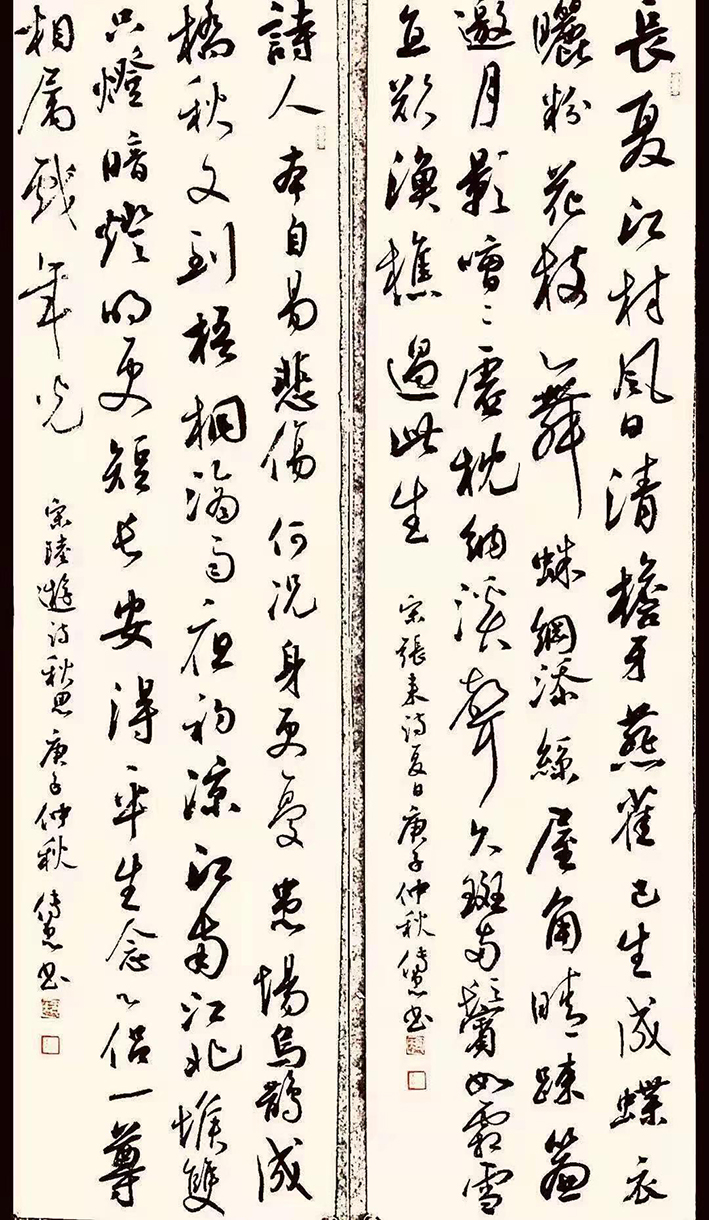 長夏江村風日清檐牙燕雀已生成蝶衣
曬粉花枝舞蛛網添絲屋角晴疎簾
邀月影嘈〻虛枕納溪聲久斑兩鬢如霜雪
直欲漁樵過此生
宋張耒詩夏日庚子仲秋書
詩人本自易悲傷何況身更憂患場烏鵲成
橋秋又到梧桐滴雨夜初涼江南江北堠雙
只燈暗燈明更短長安得平生會心侶一尊
相屬戲年光
宋陸遊詩秋思庚子仲秋書